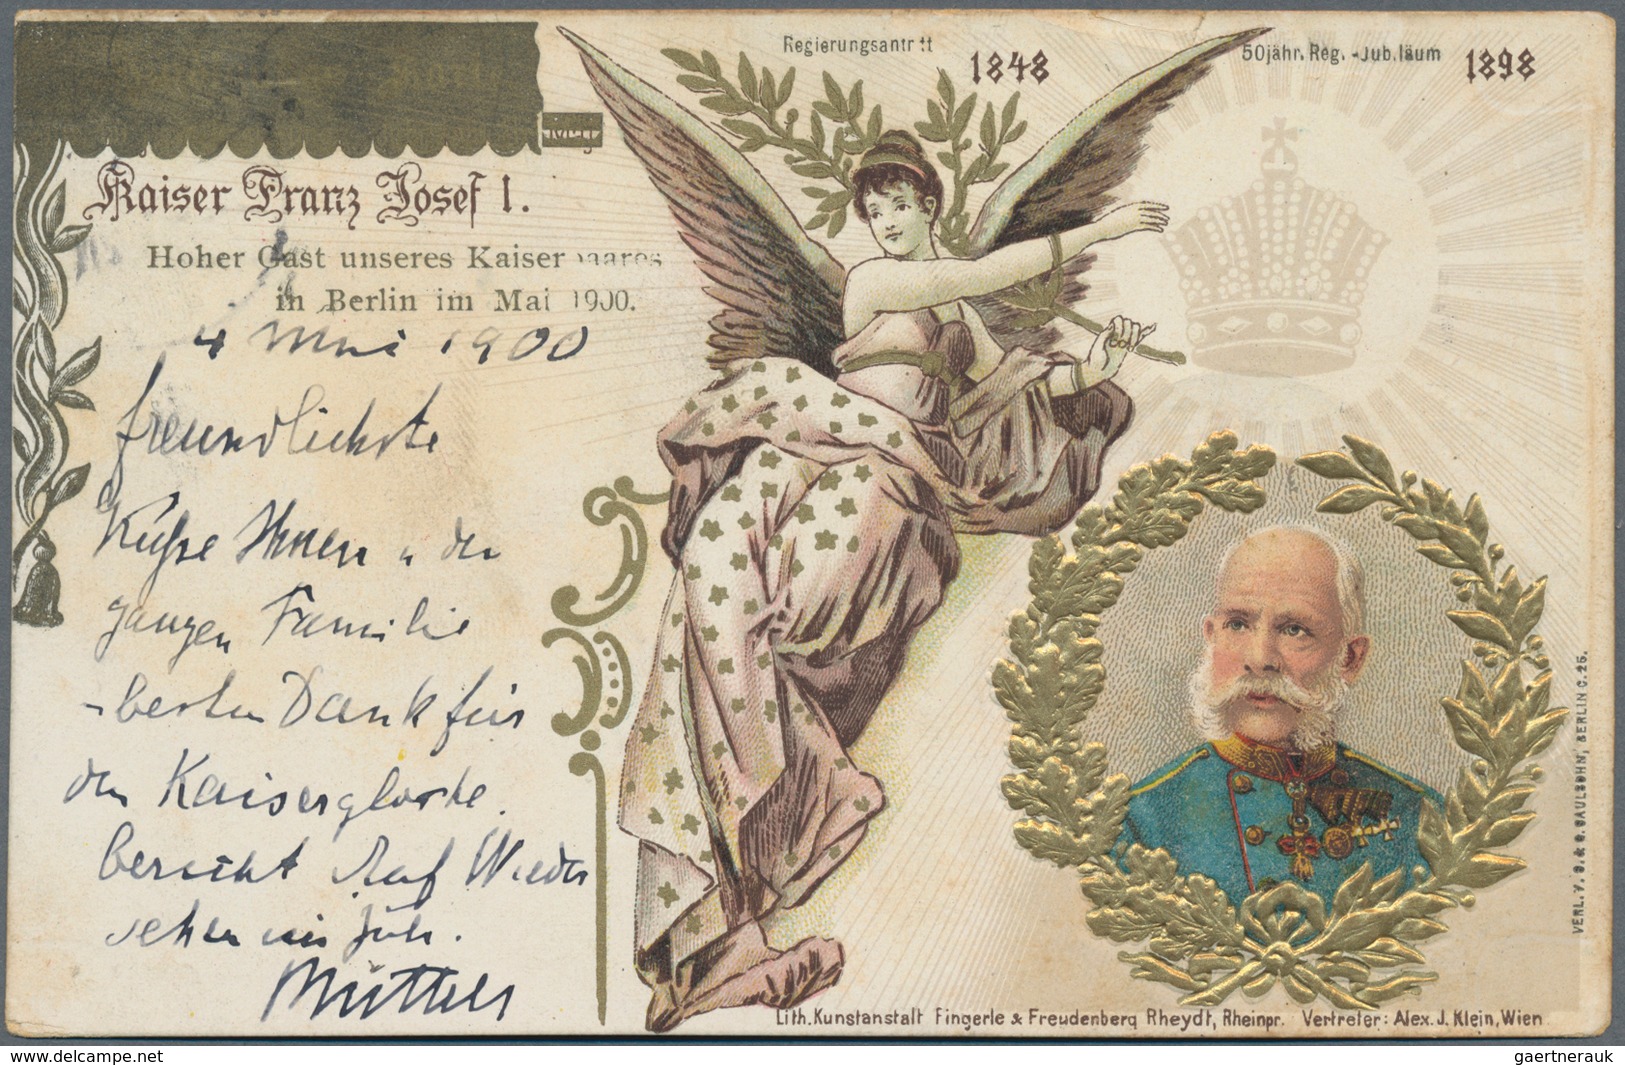 Regierungsantritt 1848
50jähr. Reg.-Jubiläum 1898
Kaiser Franz Josef I.
Hoher Gast unseres Kaiserpaares
in Berlin im Mai 1900.
4 Mai 1900
freundlichste
Küsse Ihnen u der
ganzen Familie
besten Dank für
den Kaiserglocke
Auf Wieder
sehen im
VERL. V. S. & G. SAULSOHN, BERLIN C. 25.
Lith. Kunstanstalt Fingerle & Freudenberg Rheydt, Rheinpr. Vertreter: Alex. J. Klein, Wien
www.delcampe.net
gaertnerauk